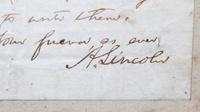 to write them.
Your friend as ever
A. Lincoln